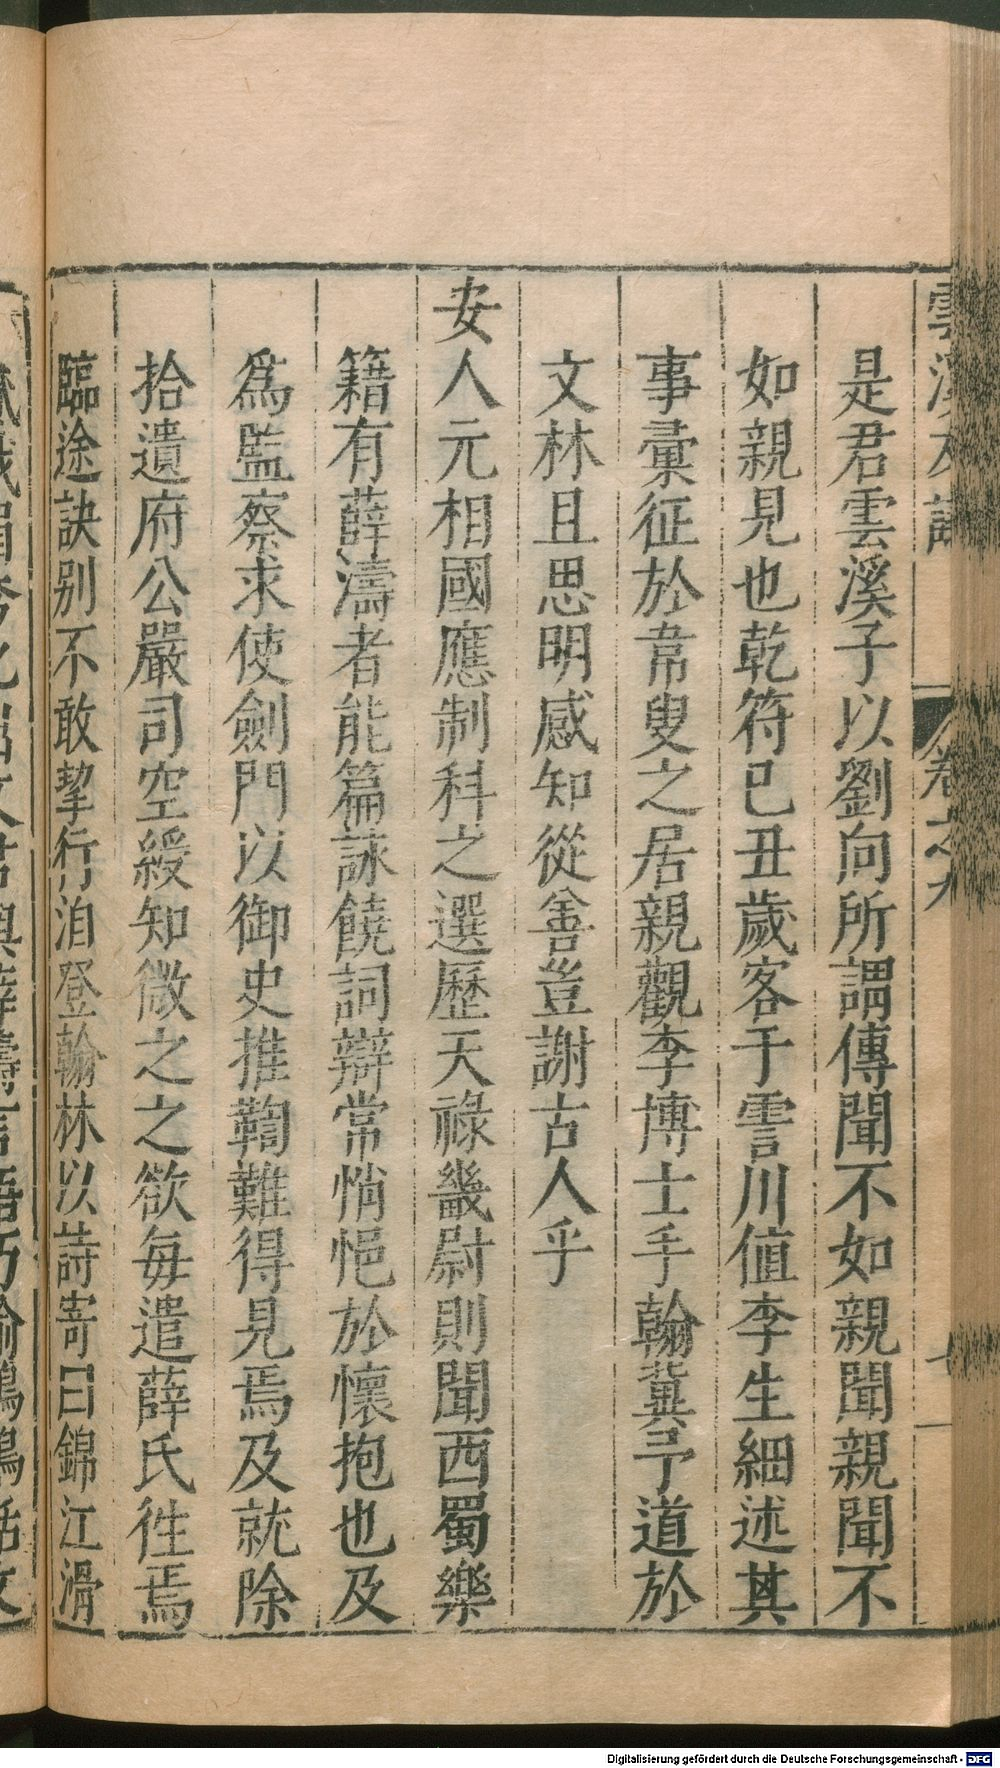 雲溪友議 卷之九 七
是君雲溪子以劉向所謂傳聞不如親聞親聞不
如親見也乾符己丑歲客于霅川值李生細述其
事彙征於韋叟之居親觀李博士手翰冀予道於
文林且思明感知從善豈謝古人乎
安人元相國應制科之選歷天祿畿尉則聞西蜀樂
籍有薛濤者能篇詠饒詞辯常悄悒於懷抱也及
為監察求使劍門以御史推鞫難得見焉及就除
拾遺府公嚴司空綬知微之之欲每遣薛氏徃焉
臨途訣別不敢挈行洎登翰林以詩寄曰錦江滑
Digitalisierung gefördert durch die Deutsche Forschungsgemeinschaft - DFG